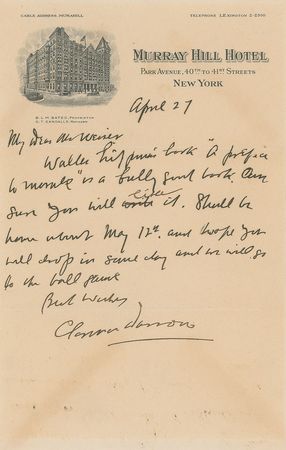 CABLE ADDRESS MURRAHILL
TELEPHONE LEXINGTON 2-2300
MURRAY HILL HOTEL
PARK AVENUE, 40TH TO 41ST STREETS
NEW YORK
B. L. M. BATES, PROPRIETOR
C. T. CANDALLS, MANAGER
April 27
My Dear Mr Weiner
Walter Lippman's book "A preface
to morals" is a bully good book. Am
sure you will like it. Shall be
home about May 12th. and hope you
will drop in some day and we will go
to the ball game
Best wishes
Clarence Darrow